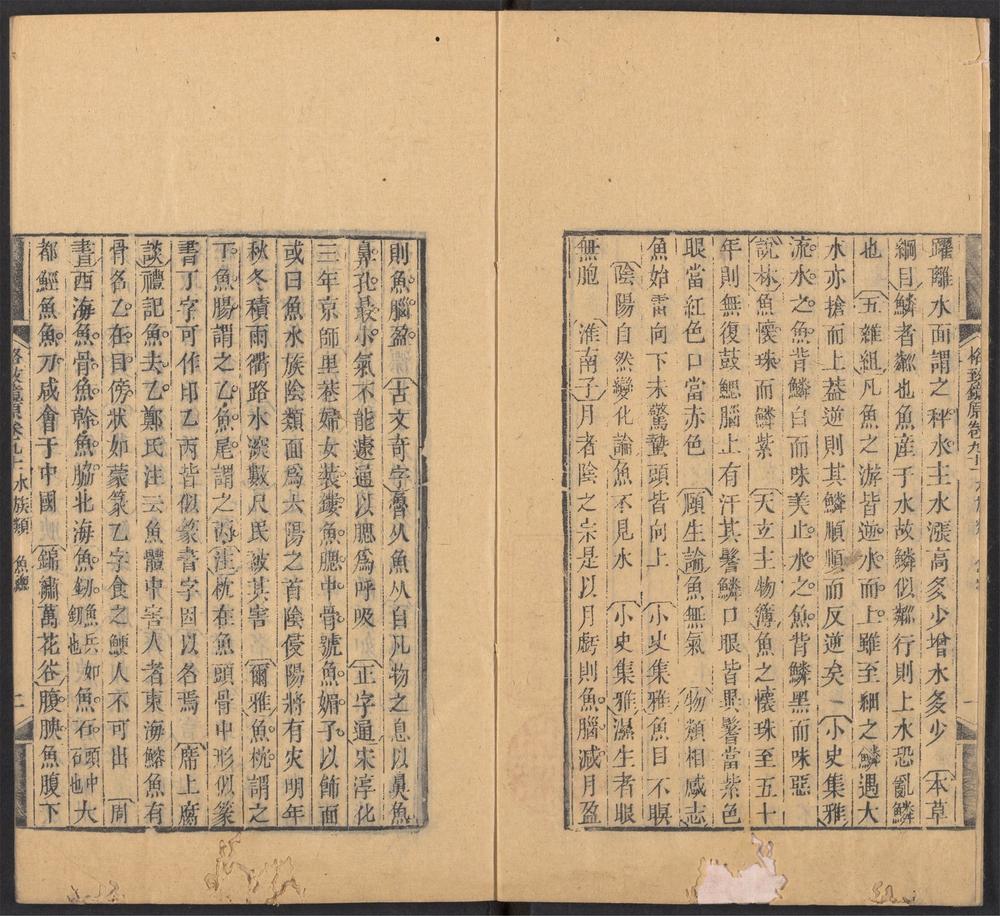 躍離水面謂之秤水主水漲高多少增水多少　本草
綱目鱗者粼也魚産于水故鱗似粼行則上水恐亂鱗
也　五雜組凡魚之游皆逆水而上雖至細之鱗遇大
水亦搶而上葢逆則其鱗順順而反逆矣　小史集雅
流水之魚背鱗白而味美止水之魚背鱗黑而味惡
說林魚懷珠而鱗紫　天立主物簿魚之懷珠至五十
年則無復鼓鰓腦上有汗其鬐鱗口眼皆異鬐當紫色
眼當紅色口當赤色　頥生論魚無氣　物類相感志
魚始雷向下未驚蟄頭皆向上　小史集雅魚目不瞑
　陰陽自然變化論魚不見水　小史集雅濕生者眼
無胞　淮南子月者陰之宗是以月虧則魚腦減月盈
則魚腦盈　古文奇字魯从魚从自凡物之息以鼻魚
鼻孔最小氣不能遽通以腮爲呼吸　正字通宋淳化
三年京師里巷婦女裝鏤魚腮中骨號魚媚子以飾面
或曰魚水族陰類面爲六陽之首陰侵陽將有灾明年
秋冬積雨衢路水深數尺民被其害　爾雅魚枕謂之
丁魚腸謂之乙魚尾謂之丙注枕在魚頭骨中形似篆
書丁字可作印乙丙皆似篆書字因以名焉　席上腐
談禮記魚去乙鄭氏注云魚體中害人者東海鰫魚有
骨名乙在目傍狀如篆乙字食之鯁人不可出　周
書西海魚骨魚幹魚脇北海魚劒魚兵如劒也魚石頭中石也大
都鯹魚魚刀咸會于中國　錦繡萬花谷腹腴魚腹下
格致鏡原卷九十　水族類　魚總　二